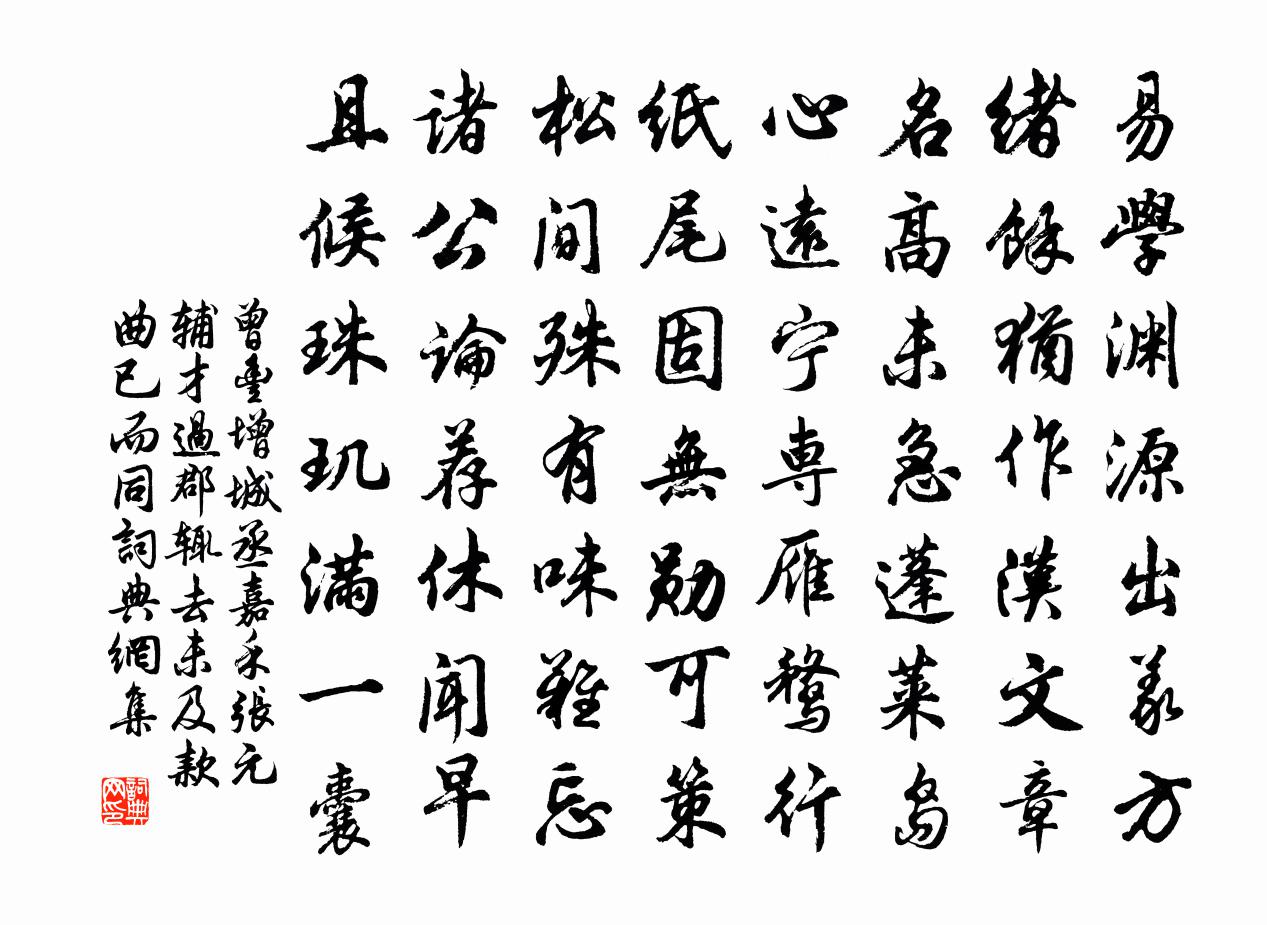 易學渊源出義方
緒餘猶作漢文章
名高未急蓬萊島
心遠宁専雁鶩行
紙尾固無勋可策
松间殊有味難忘
诸公論荐休闻早
且候珠玑满一囊
曾豊增城丞嘉禾張元
辅才過郡辄去未及款
曲已而同詞典網集
詞典网印